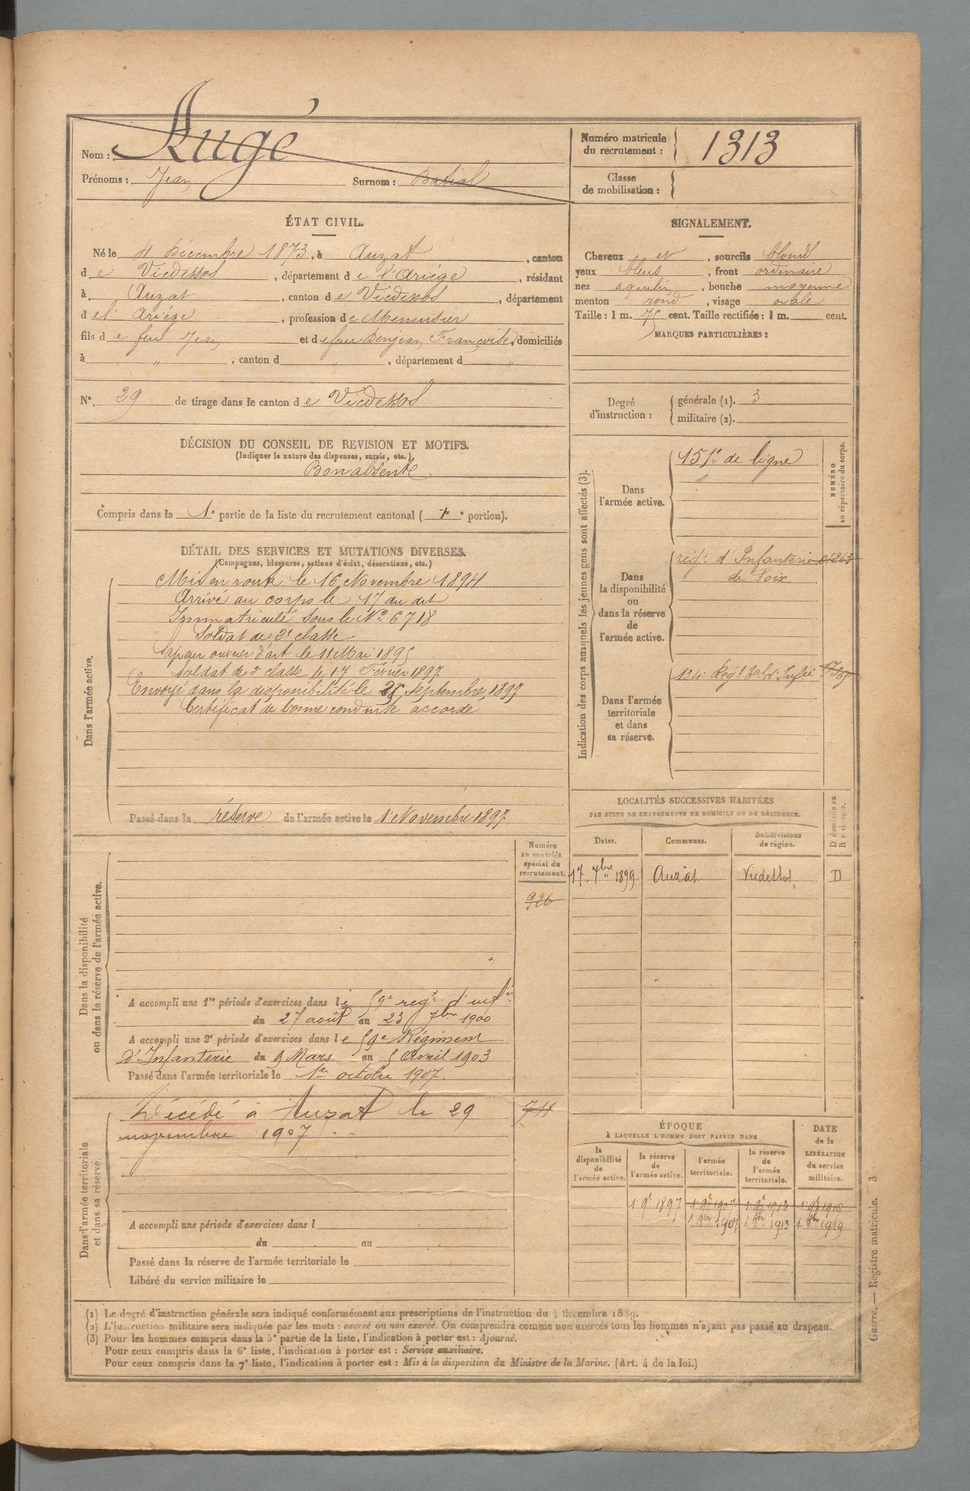 Nom : Augé
Prénoms : Jean Surnom :
Numéro matricule du recrutement : 1313
Classe de mobilisation :
ÉTAT CIVIL.
Né le 4 Décembre 1873, à Auzat, canton
de Vicdessos, département de l'Ariége, résidant
à Auzat, canton de Vicdessos, département
del' Ariége, profession de Menuisier
fils de feu Jean et de feue Benjean Françoise, domiciliés
à " , canton d " , département d "
N° 29 de tirage dans le canton de Vicdessos
SIGNALEMENT.
Cheveux et , sourcils blond
yeux bleus , front ordinaire
nez aquilin , bouche moyenne
menton rond , visage ovale
Taille : 1 m. 75 cent. Taille rectifiée : 1 m. cent.
MARQUES PARTICULIÈRES :
Degré d'instruction : générale (1). 3
militaire (2).
DÉCISION DU CONSEIL DE REVISION ET MOTIFS.
(Indiquer la nature des dispenses, sursis, etc.)
Bon absent
Compris dans la 1e partie de la liste du recrutement cantonal ( 1e portion).
DÉTAIL DES SERVICES ET MUTATIONS DIVERSES.
(Campagnes, blessures, actions d'éclat, décorations, etc.)
Dans l'armée active.
Mis en route le 16 Novembre 1894
Arrivé au corps le 17 du dit
Immatriculé sous le N° 6718
Soldat de 2e classe
ouvrier d'art le 11 Mai 1895
Soldat de 2e classe le 17 Février 1897
Envoyé dans la disponibilité le 25 Septembre 1897
Certificat de bonne conduite accordé
Passé dans la réserve de l'armée active le 1 Novembre 1897
Indication des corps auxquels les jeunes gens sont affectés (3).
NUMÉRO au répertoire du corps.
Dans l'armée active.
151e de ligne
Dans la disponibilité ou dans la réserve de l'armée active.
régt. d'Infanterie
de Foix
Dans l'armée territoriale et dans sa réserve.
Régt d'Infrie
LOCALITÉS SUCCESSIVES HABITÉES
PAR SUITE DE CHANGEMENTS DE DOMICILE OU DE RÉSIDENCE.
Dates. Communes. Subdivisions de région.
17 7bre 1899 Auzat Vicdessos, D
Dans la disponibilité ou dans la réserve de l'armée active.
Numéro au contrôle spécial du recrutement.
926
A accompli une 1re période d'exercices dans le 59e regt d'infie
du 27 août au 23 7bre 1900
A accompli une 2e période d'exercices dans le 59e Régiment
d'Infanterie du 9 Mars au 5 Avril 1903
Passé dans l'armée territoriale le 1er octobre 1907.
Dans l'armée territoriale et dans sa réserve.
Décédé à Auzat le 29
novembre 1907
A accompli une période d'exercices dans l
du au
Passé dans la réserve de l'armée territoriale le
Libéré du service militaire le
ÉPOQUE
À LAQUELLE L'HOMME DOIT PASSER DANS
DATE de la LIBÉRATION du service militaire.
la disponibilité de l'armée active.
la réserve de l'armée active.
l'armée territoriale.
la réserve de l'armée territoriale.
1 9e 1897
(1) Le degré d'instruction générale sera indiqué conformément aux prescriptions de l'instruction du 4 décembre 1889.
(2) L'instruction militaire sera indiquée par les mots : exercé ou non exercé. On comprendra comme non exercés tous les hommes n'ayant pas passé au drapeau.
(3) Pour les hommes compris dans la 5e partie de la liste, l'indication à porter est : Ajourné.
Pour ceux compris dans la 6e liste, l'indication à porter est : Service auxiliaire.
Pour ceux compris dans la 7e liste, l'indication à porter est : Mis à la disposition du Ministre de la Marine. (Art. 4 de la loi.)
Guerre. — Registre matricule. 3